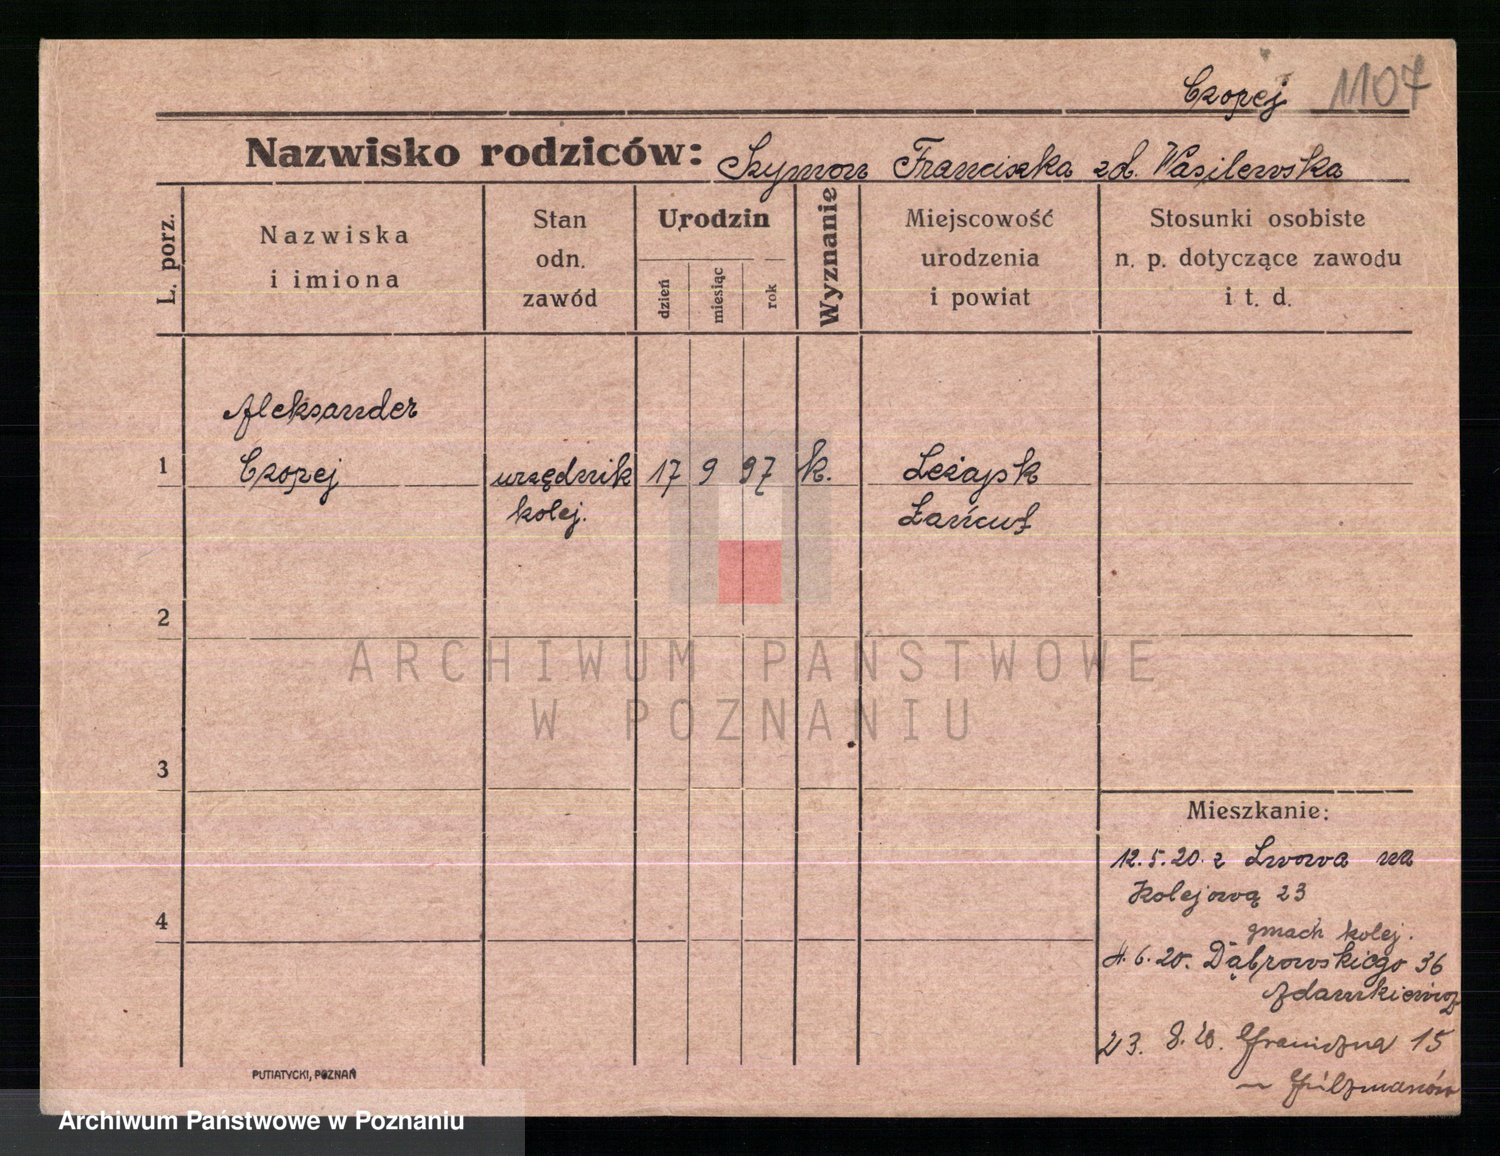 Czopej 1107
Nazwisko rodziców: Szymon Franciszka zd. Wasilewska
L. porz.
Nazwiska
i imiona
Stan
odn.
zawód
Urodzin
dzień
miesiąc
rok
Wyznanie
Miejscowość
urodzenia
i powiat
Stosunki osobiste
n. p. dotyczące zawodu
i t. d.
Aleksander
1 Czopej urzędnik 17 9 97 k. Leżajsk
kolej. Łańcut
2
ARCHIWUM PAŃSTWOWE
W POZNANIU
3
Mieszkanie:
12.5.20. z Lwowa na
Kolejową 23
4
gmach kolej.
6.20. Dąbrowskiego 36
23. 8. 20. Graniczna 15
PUTIATYCKI, POZNAŃ
Archiwum Państwowe w Poznaniu